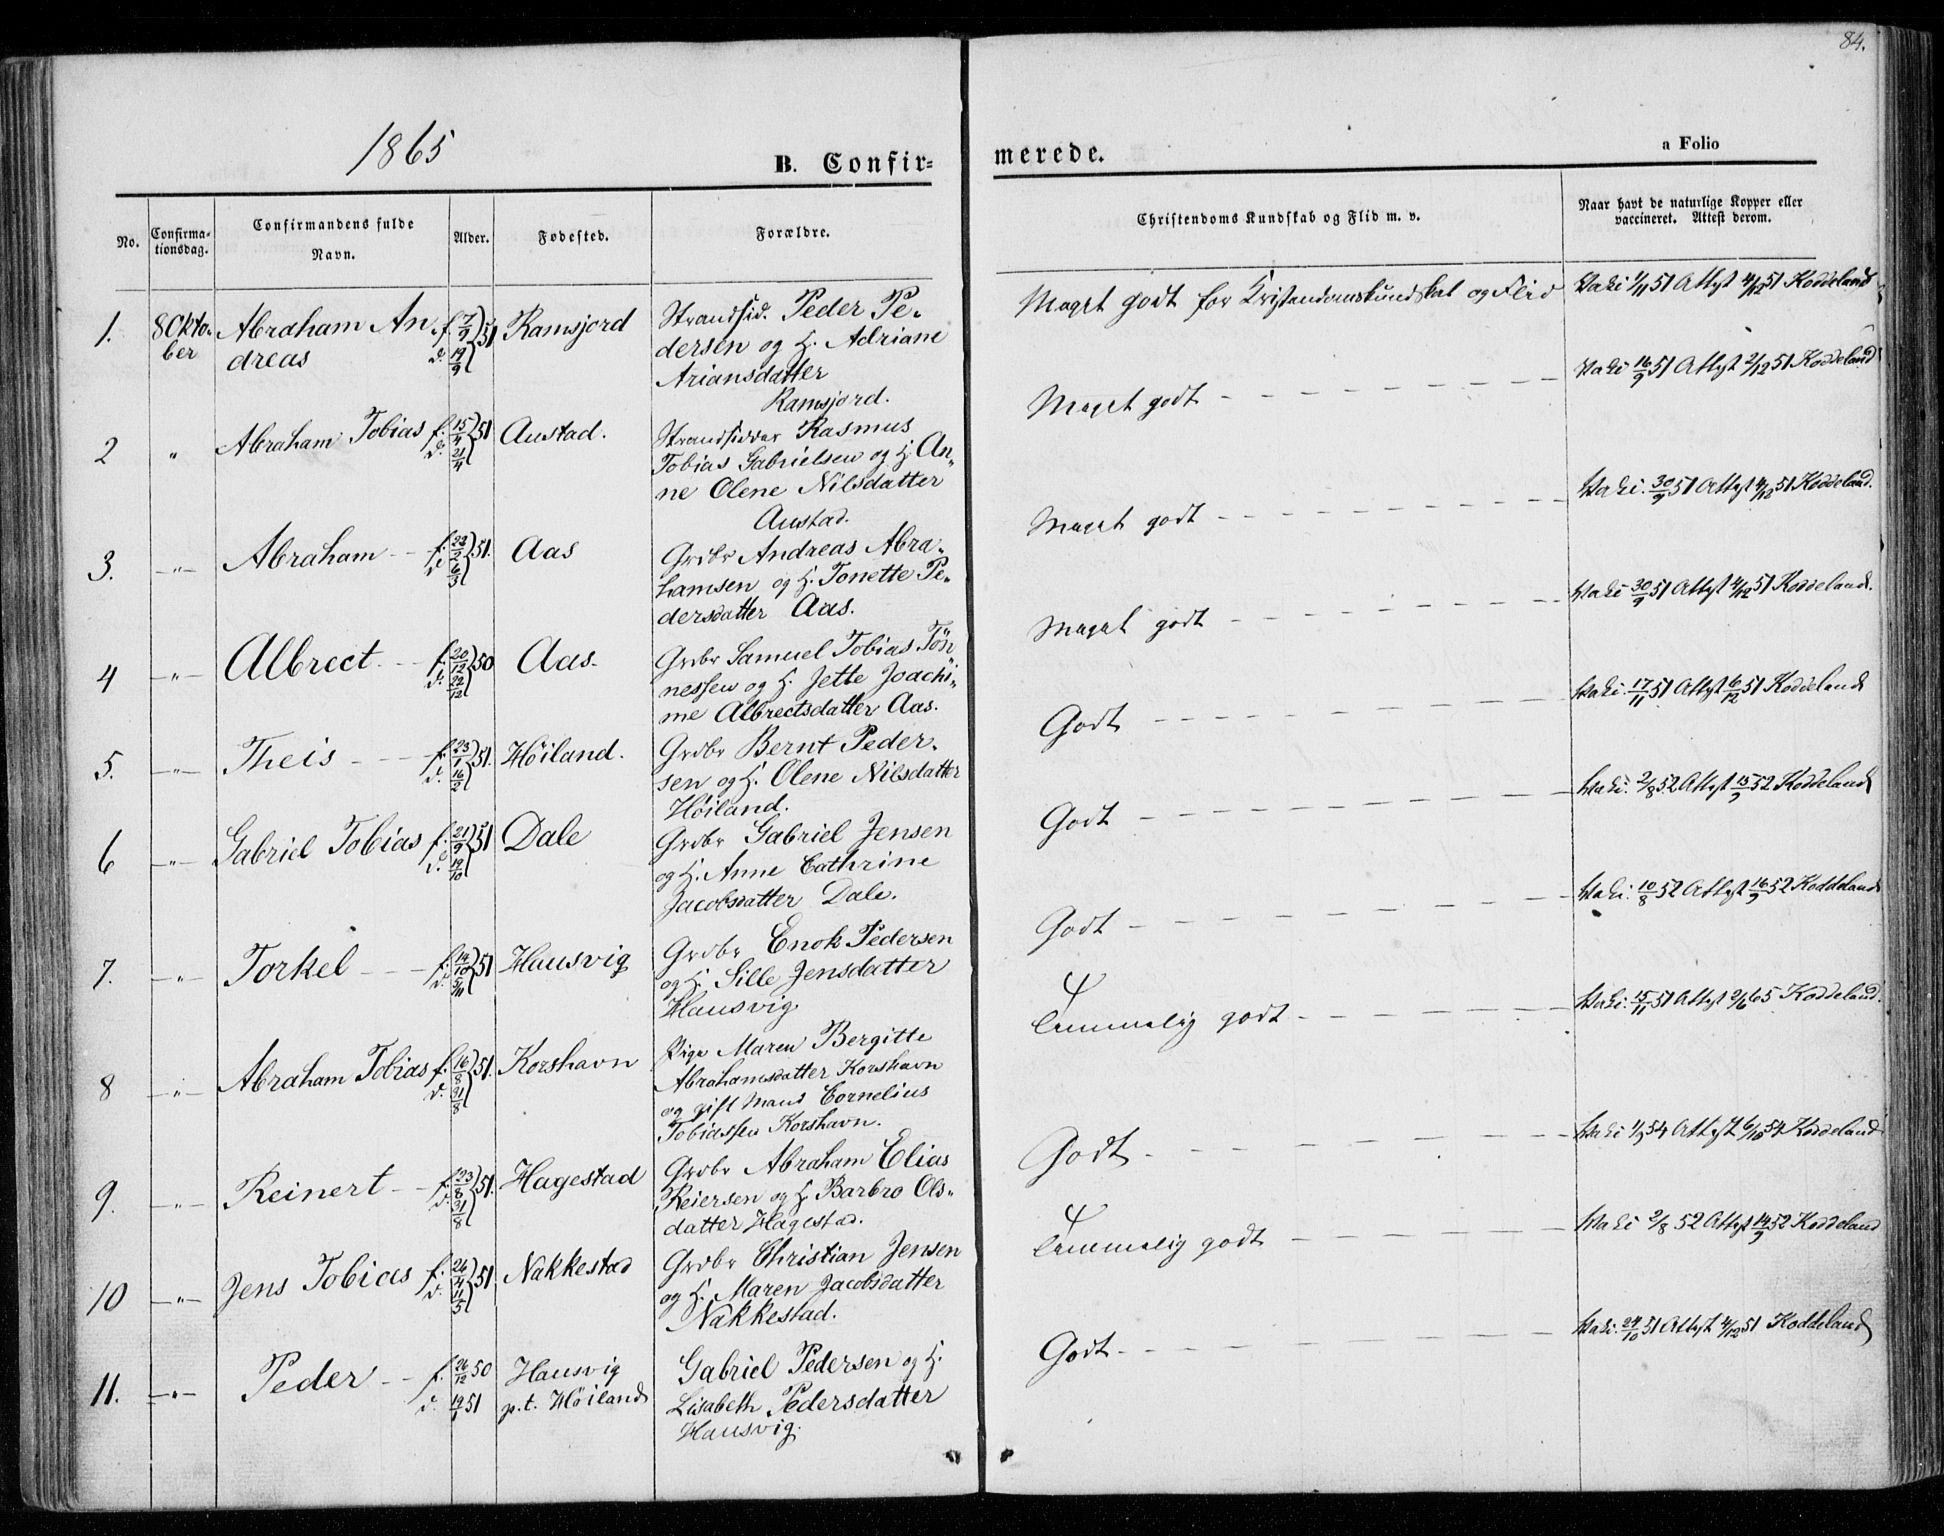 84.
1865
B. Confir=
merede.
a Folio
No.
Confirma-
tionsdag.
Confirmandens fulde
Navn.
Alder.
Fødested.
Forældre.
Christendoms Kundskab og Flid m. v.
Naar havt de naturlige Kopper eller
vaccineret. Attest derom.
1.
8 Okto-
ber
Abraham An
dreas
f. 7/9 51
d. 19/9
Ramsjord
Strandsid. Peder Pe-
dersen og H. Adriane
Ariansdatter
Ramsjord.
Meget godt for Kristendomskundskab og Flid
Vaki 1/11 51 Attest 4/12 51 Koddeland
2
"
Abraham Tobias
f. 15/4 51
d. 21/4
Austad.
Strandsidder Rasmus
Tobias Gabrielsen og H. An-
ne Olene Nilsdatter
Austad.
Meget godt
Vaki 16/9 51 Attest 2/12 51 Koddeland
3.
"
Abraham
f. 23/2 51.
d. 6/3
Aas
Grdbr Andreas Abra-
hamsen og H. Tonette Pe-
dersdatter Aas.
Meget godt
Vaki. 30/9 51 Attest 4/12 51 Koddeland.
4
"
Albrect
f. 20/12 50
d. 22/12
Aas.
Grdbr Samuel Tobias Tön-
nessen og H. Jette Joachi-
me Albrectsdatter Aas.
Meget godt
Vaki 30/9 51 Attest 4/12 51 Koddeland.
5.
"
Theis
f. 23/1 51.
d. 16/2
Höiland.
Grdbr Bernt Peder-
sen og H. Olene Nilsdatter
Höiland.
Godt
Vaki. 17/11 51 Attest 6/12 51 Koddeland
6
"
Gabriel Tobias
f. 21/9 51
d. 19/10
Dale
Grdbr Gabriel Jensen
og H. Anne Cathrine
Jacobsdatter Dale.
Godt
Vaki. 2/8 52 Attest 15/9 52 Koddeland
7.
"
Torkel
f. 14/10 51
d. 5/11
Hausvig
Grdbr Enok Pedersen
og H. Sille Jensdatter
Hausvig
Godt
Vaki. 10/8 52 Attest 16/9 52 Koddeland
8
"
Abraham Tobias
f. 16/8 51.
d. 31/8
Korshavn
Pige Maren Bergitte
Abrahamsdatter Korshavn
og gift Mand Cornelius
Tobiassen Korshavn.
Temmelig godt
Vaki. 15/11 51 Attest 2/6 65 Koddeland.
9.
"
Reinert
f. 23/8 51.
d. 31/8
Hagestad
Grdbr Abraham Elias
Reiersen og H. Barbro Ols-
datter Hagestad.
Godt
Vaki 1/9 54 Attest 6/10 54 Koddeland
10
"
Jens Tobias
f. 26/4 51
d. 11/5
Nakkestad
Grdbr Christian Jensen
og H. Maren Jacobsdatter
Nakkestad.
Temmelig godt
Vaki 2/8 52 Attest 14/9 52 Koddeland
11.
"
Peder
f. 26/12 50
d. 19/1 51
Hausvig
p.t. Höiland
Gabriel Pedersen og H.
Lisabeth Pedersdatter
Hausvig.
Godt
Vaki. 24/10 51 Attest 4/12 51 Koddeland